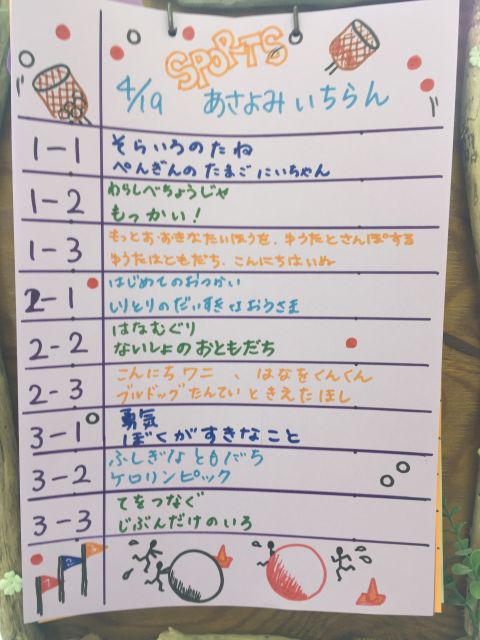 SPORTS
4/19 あさよみいちらん
1-1 そらいろのたね
ぺんぎんのたまごにいちゃん
1-2 わらしべちょうじゃ
もっかい!
1-3 もっとおおきなたいほうを、ゆうたとさんぽする
ゆうたはともだち、こんにちはいぬ
2-1 はじめてのおつかい
しりとりのだいすきなおうさま
2-2 はなむぐり
ないしょのおともだち
2-3 こんにちワニ、はなをくんくん
ブルドッグたんていときえたほし
3-1 勇気
ぼくがすきなこと
3-2 ふしぎなともだち
ケロリンピック
3-3 てをつなぐ
じぶんだけのいろ